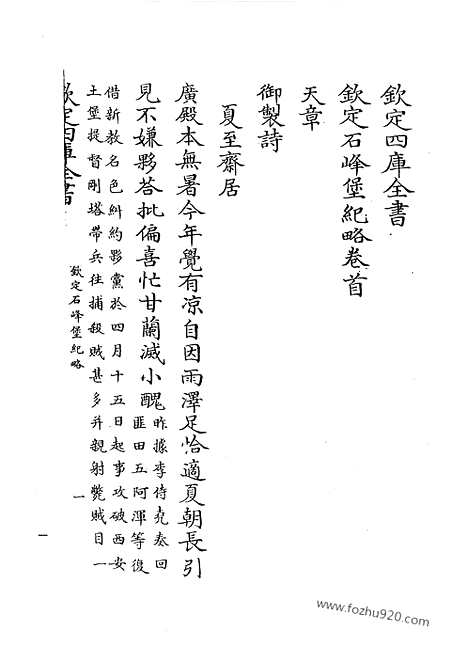 欽定四庫全書
欽定石峰堡紀略卷首
天章
御製詩
夏至齋居
廣殿本無暑今年覺有凉自因雨澤足恰適夏朝長引
見不嫌夥荅批偏喜忙甘蘭滅小醜昨據李侍堯奏回
匪田五阿渾等復
借新教名色糾約夥黨於四月十五日起事攻破西安
土堡提督剛塔帶兵往捕殺賊甚多并親射斃賊目一
欽定四庫全書
欽定石峰堡紀略
一
一
www.fozhu920.com